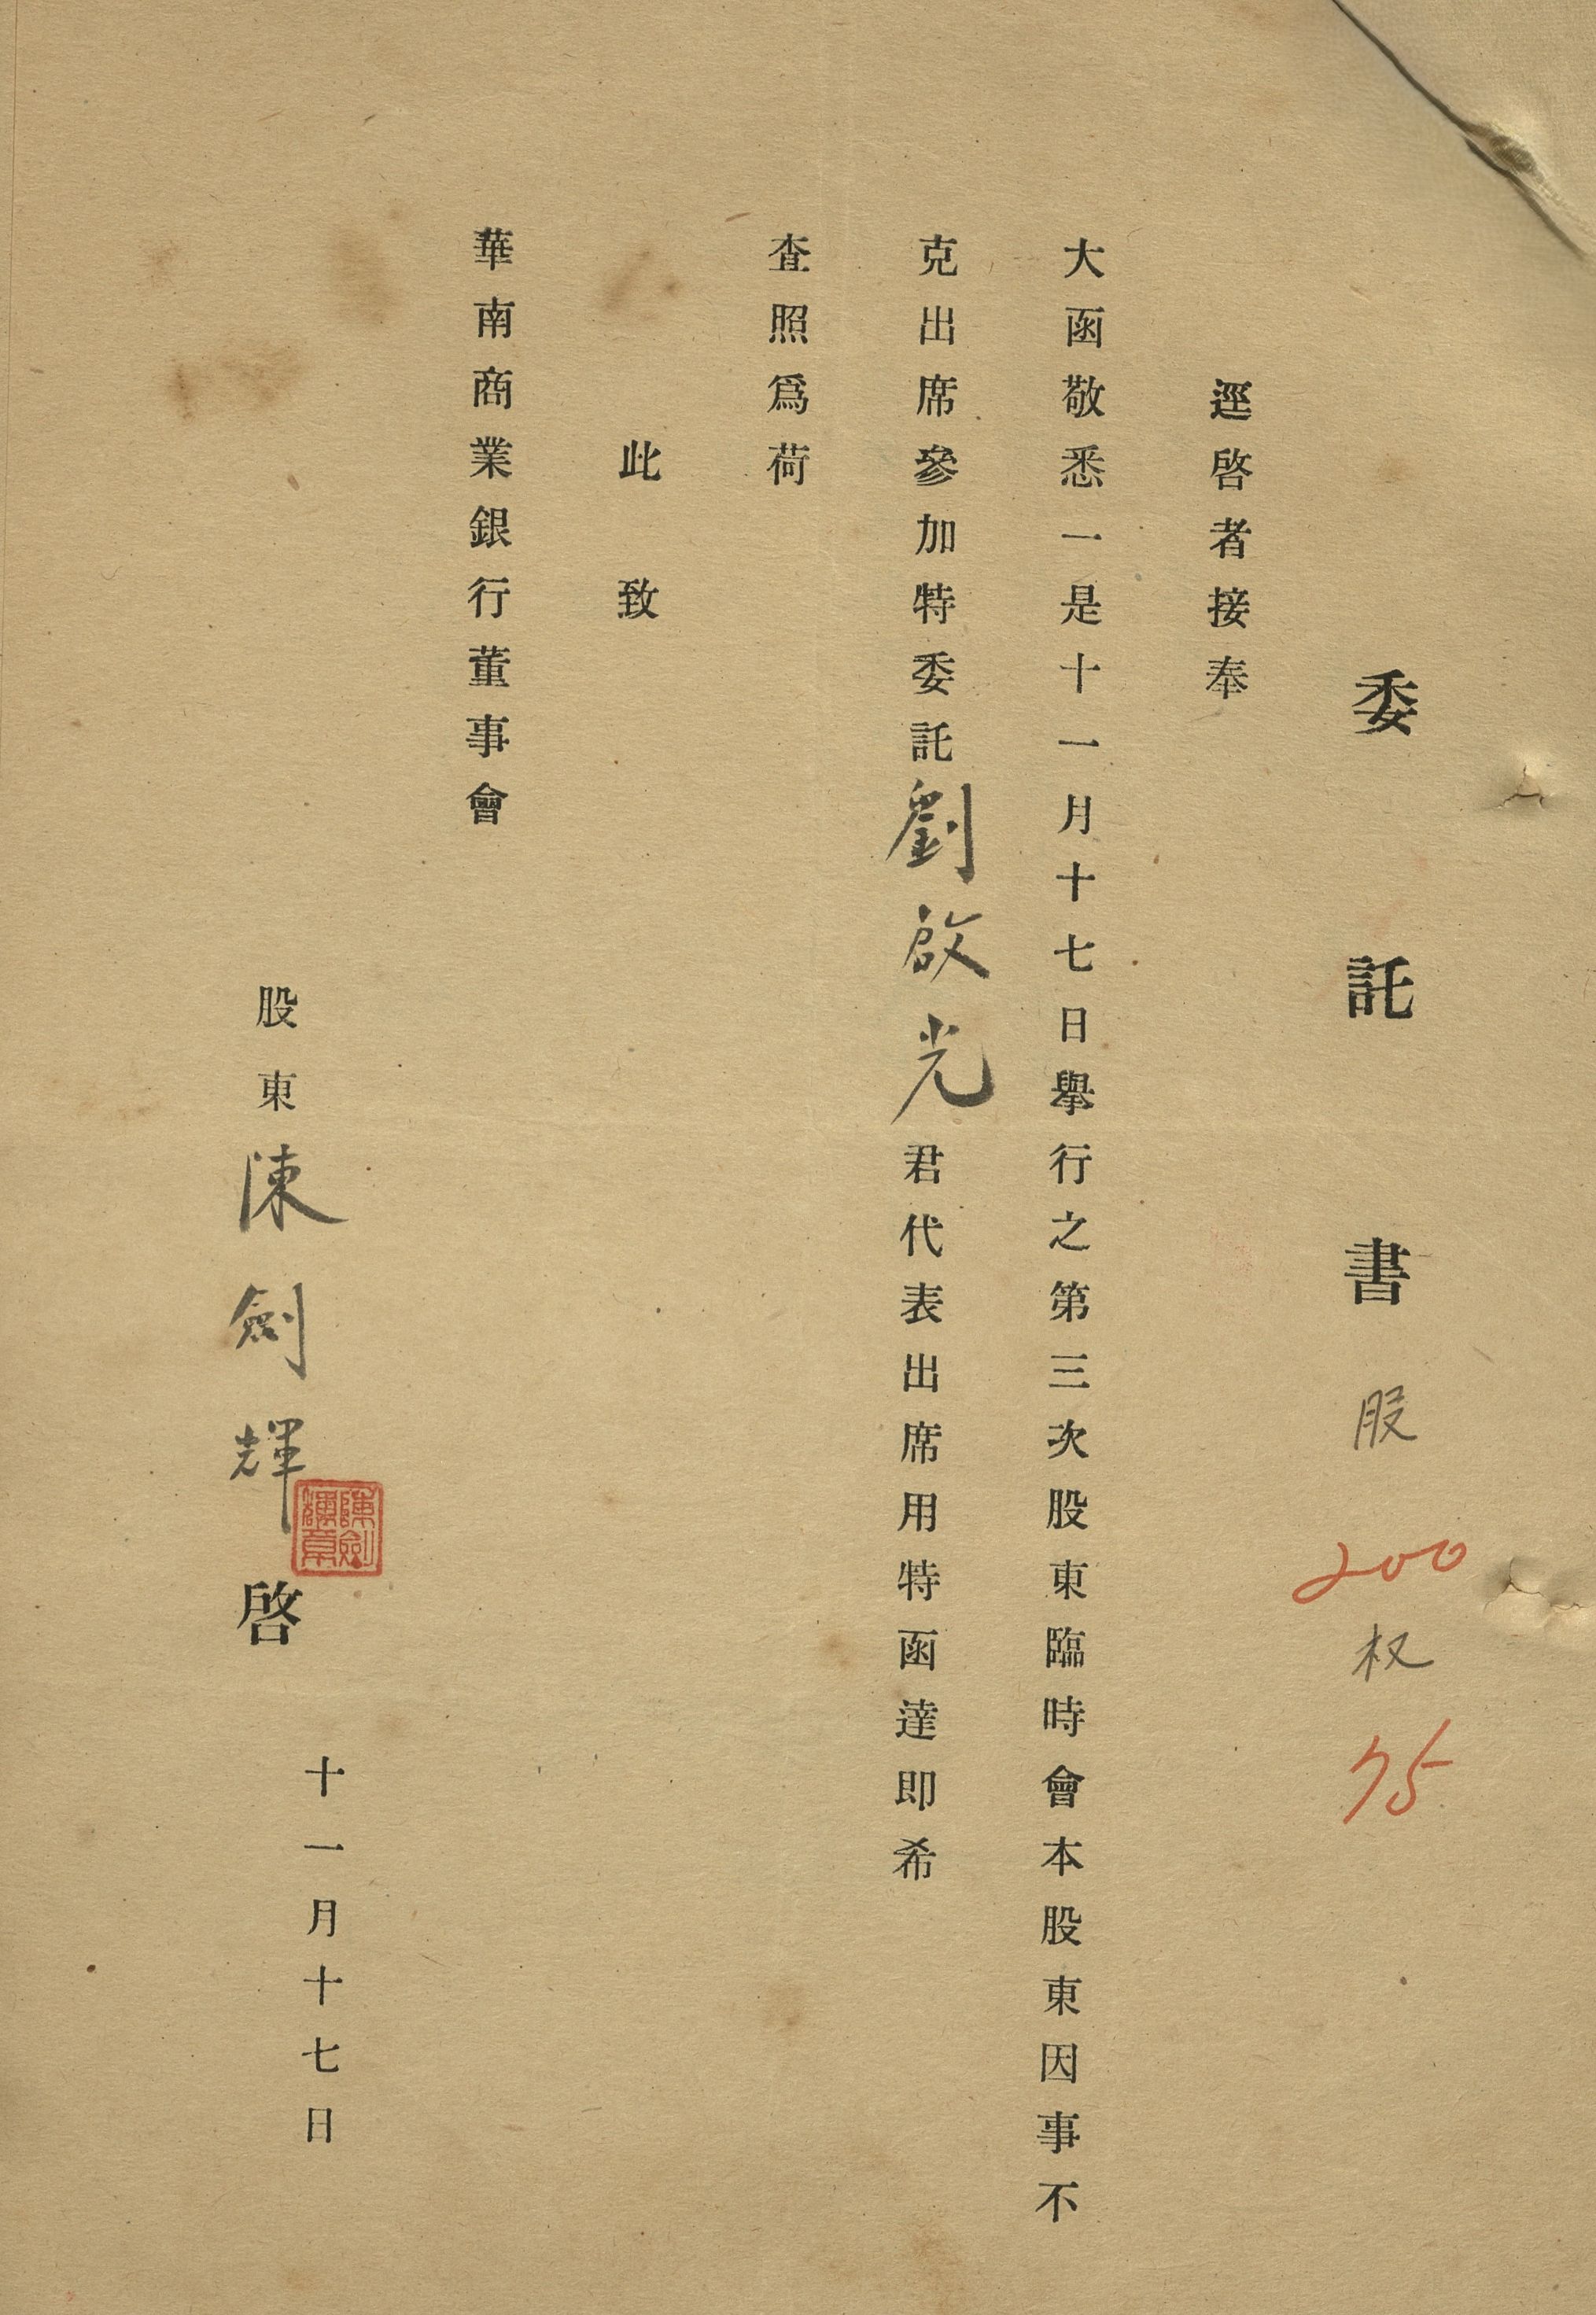 委託書 股 200 权 75
逕啓者接奉
大函敬悉一是十一月十七日舉行之第三次股東臨時會本股東因事不
克出席參加特委託劉啟光君代表出席用特函達即希
査照爲荷
此致
華南商業銀行董事會
十一月十七日
股東陳劍輝啓
陳劍輝章